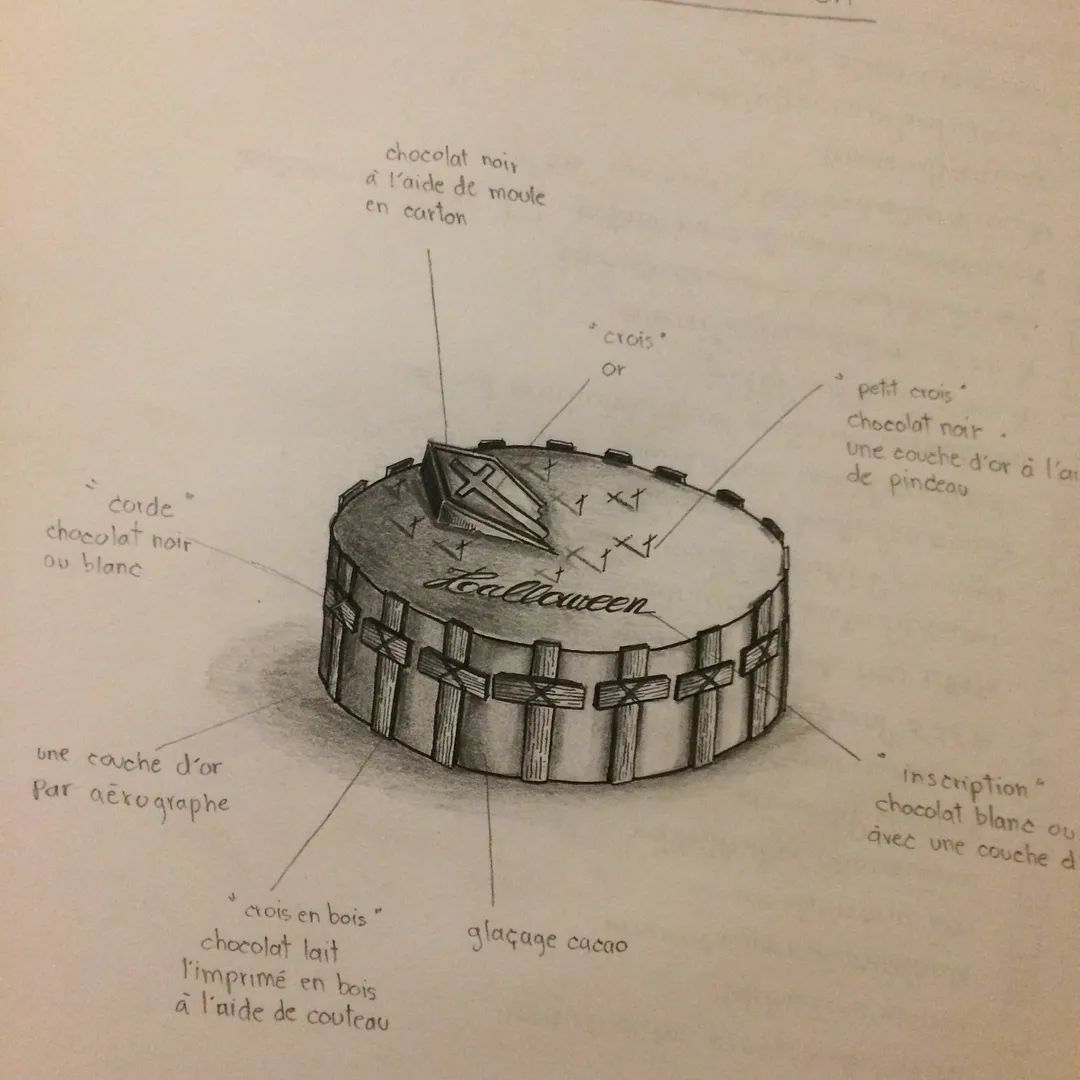 chocolat noir
à l'aide de moule
en carton
"crois"
or
"petit crois"
chocolat noir.
une couche d'or à l'ai
de pinceau
"corde"
chocolat noir
ou blanc
Halloween
une couche d'or
par aérographe
"inscription"
chocolat blanc ou
avec une couche d
"crois en bois"
chocolat lait
l'imprimé en bois
à l'aide de couteau
glaçage cacao